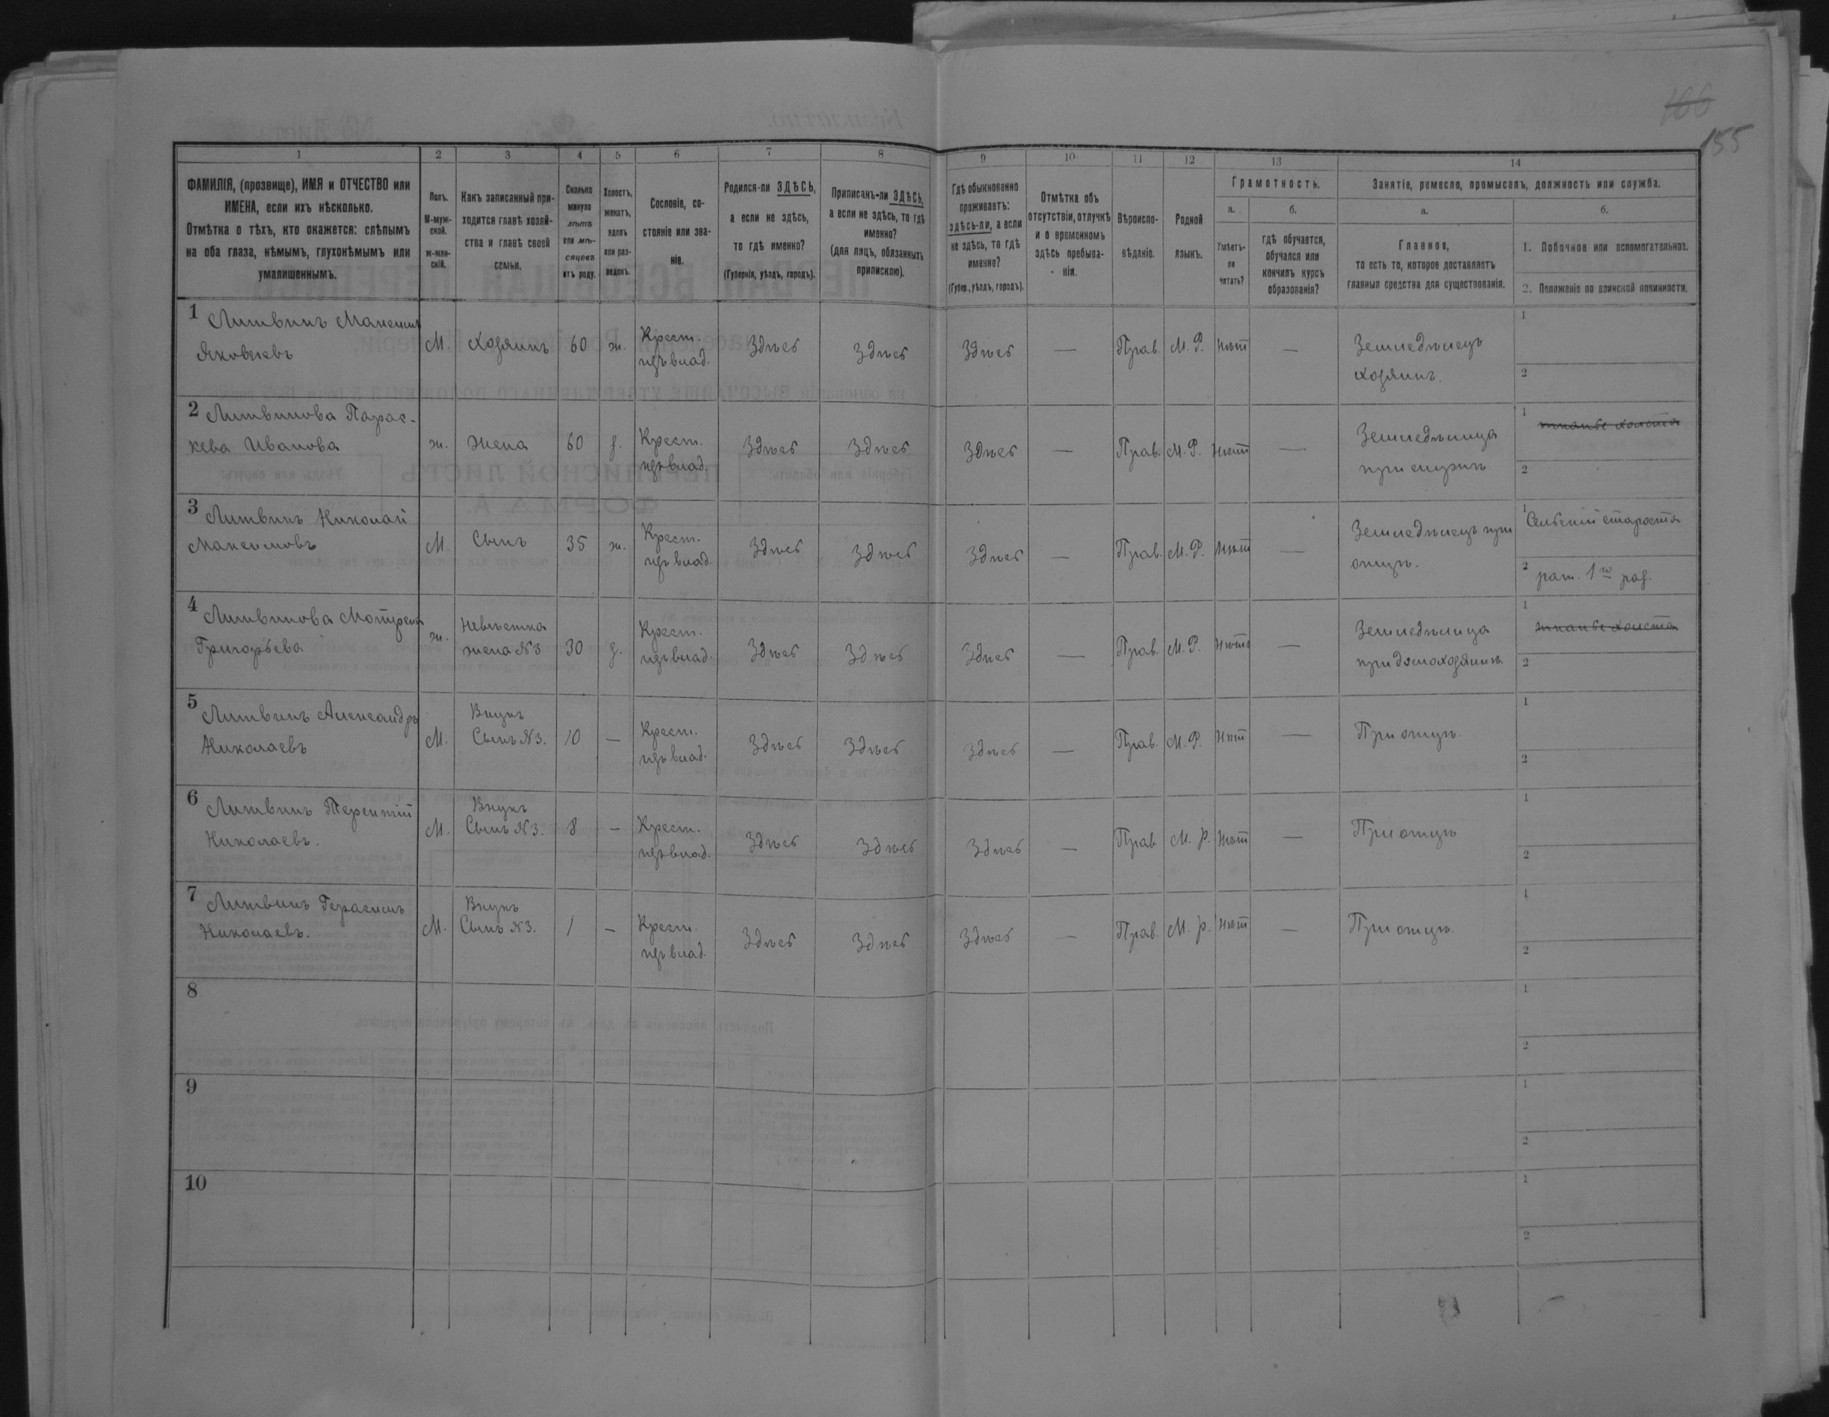 166
155
1 2 3 4 5 6 7 8 9 10 11 12 13 14
ФАМИЛІЯ, (прозвище), ИМЯ и ОТЧЕСТВО или
ИМЕНА, если ихъ нѣсколько.
Отмѣтка о тѣхъ, кто окажется: слѣпымъ
на оба глаза, нѣмымъ, глухонѣмымъ или
умалишеннымъ.
Полъ.
М-муж-
ской.
ж-жен-
скій.
Какъ записанный при-
ходится главѣ хозяй-
ства и главѣ своей
семьи.
Сколько
минуло
лѣтъ
или мѣ-
сяцевъ
отъ роду.
Холостъ,
женатъ,
вдовъ
или раз-
веденъ.
Сословіе, со-
стояніе или зва-
ніе.
Родился-ли ЗДѢСЬ,
а если не здѣсь,
то гдѣ именно?
(Губернія, уѣздъ, городъ).
Приписанъ-ли ЗДѢСЬ,
а если не здѣсь, то гдѣ
именно?
(для лицъ, обязанныхъ
припискою).
Гдѣ обыкновенно
проживаетъ:
здѣсь-ли, а если
не здѣсь, то гдѣ
именно?
(Губер., уѣздъ, городъ).
Отмѣтка объ
отсутствіи, отлучкѣ
и о временномъ
здѣсь пребыва-
ніи.
Вѣроиспо-
вѣданіе.
Родной
языкъ.
Грамотность.
а.
Умѣетъ-
ли
читать?
б.
гдѣ обучается,
обучался или
кончилъ курсъ
образованія?
Занятіе, ремесло, промыселъ, должность или служба.
а.
Главное,
то есть то, которое доставляетъ
главныя средства для существованія.
б.
1. Побочное или вспомогательное.
2. Положеніе по воинской повинности.
1 Литвинъ Максимъ
Яковлевъ
М. Хозяинъ 60 ж. Крест. изъ влад. Здѣсь Здѣсь Здѣсь — Прав. М. Р. Нѣтъ — Земледѣлецъ
хозяинъ.
1
2
2 Литвинова Парас-
кева Иванова
ж. Жена 60 з. Крест. изъ влад. Здѣсь Здѣсь Здѣсь — Прав. М. Р. Нѣтъ — Земледѣлица
при мужѣ
1 тканье холста
2
3 Литвинъ Николай
Максимовъ
М. Сынъ 35 ж. Крест. изъ влад. Здѣсь Здѣсь Здѣсь — Прав. М. Р. Нѣтъ — Земледѣлецъ при
отцѣ.
1 Сельскій староста
2 рат. 1го раз.
4 Литвинова Мотрена
Григорьева
ж. Невѣстка
жена №3 30 з. Крест. изъ влад. Здѣсь Здѣсь Здѣсь — Прав. М. Р. Нѣтъ — Земледѣлица
при домохозяинѣ
1 тканье холста
2
5 Литвинъ Александръ
Николаевъ
М. Внукъ
Сынъ №3. 10 — Крест. изъ влад. Здѣсь Здѣсь Здѣсь — Прав. М. Р. Нѣтъ — При отцѣ.
1
2
6 Литвинъ Терентій
Николаевъ.
М. Внукъ
Сынъ №3. 8 — Крест. изъ влад. Здѣсь Здѣсь Здѣсь — Прав. М. р. Нѣтъ — При отцѣ
1
2
7 Литвинъ Герасимъ
Николаевъ.
М. Внукъ
Сынъ №3. 1 — Крест. изъ влад. Здѣсь Здѣсь Здѣсь — Прав. М. р. Нѣтъ — При отцѣ.
1
2
8
1
2
9
1
2
10
1
2